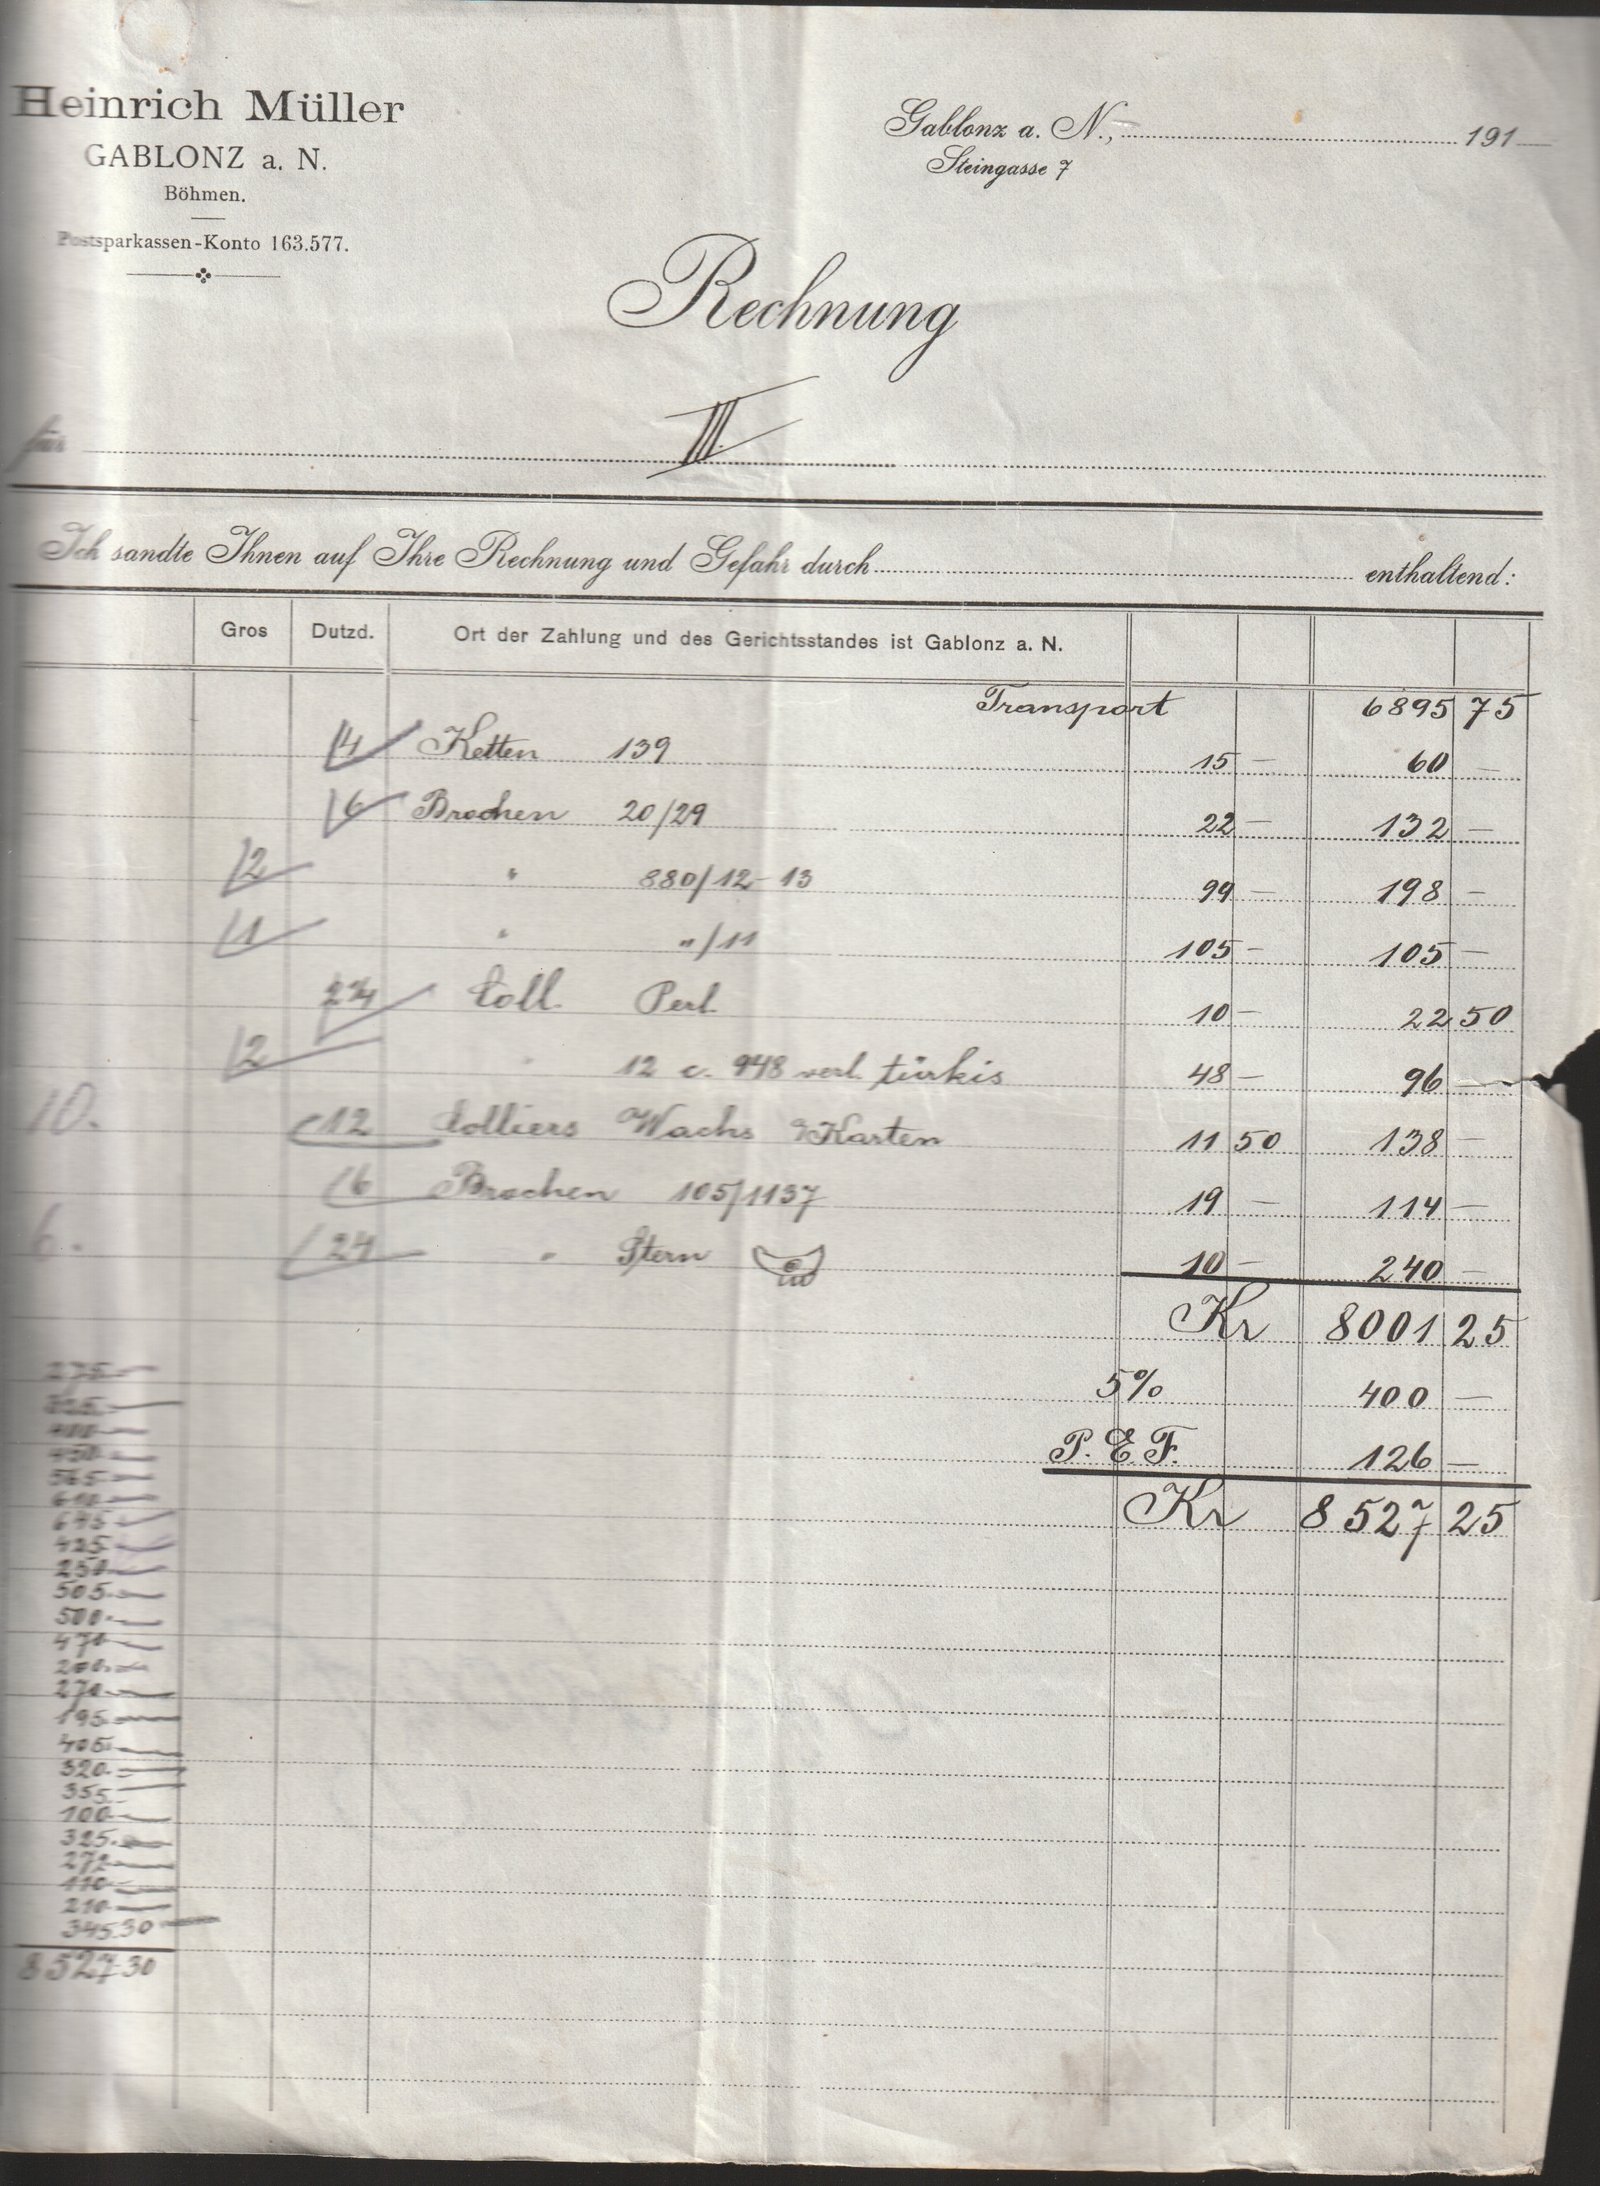 Heinrich Müller
GABLONZ a. N.
Böhmen.
Postsparkassen-Konto 163.577.
Gablonz a. N., 191
Steingasse 7
Rechnung
für III.
Ich sandte Ihnen auf Ihre Rechnung und Gefahr durch enthaltend:
Gros Dutzd. Ort der Zahlung und des Gerichtsstandes ist Gablonz a. N.
Transport 6895 75
4 Ketten 139 15 — 60 —
6 Brochen 20/29 22 — 132 —
2 " 880/12-13 99 — 198 —
1 " "/11 105 — 105 —
2 1/4 Coll. Perl. 10 — 22 50
2 " 12 c. 948 verl. türkis 48 — 96 —
10. 12 Colliers Wachs Karten 11 50 138 —
6 Brochen 105/1137 19 — 114 —
6. 24 " Stern 10 — 240 —
Kr 8001 25
5% 400 —
P. E F. 126 —
Kr 8527 25
275.—
325.—
400.—
450.—
565.—
610.—
645.—
425.—
250.—
505.—
500.—
470.—
200.—
270.—
195.—
405.—
320.—
355.—
100.—
325.—
272.—
110.—
210.—
345.30
8527.30